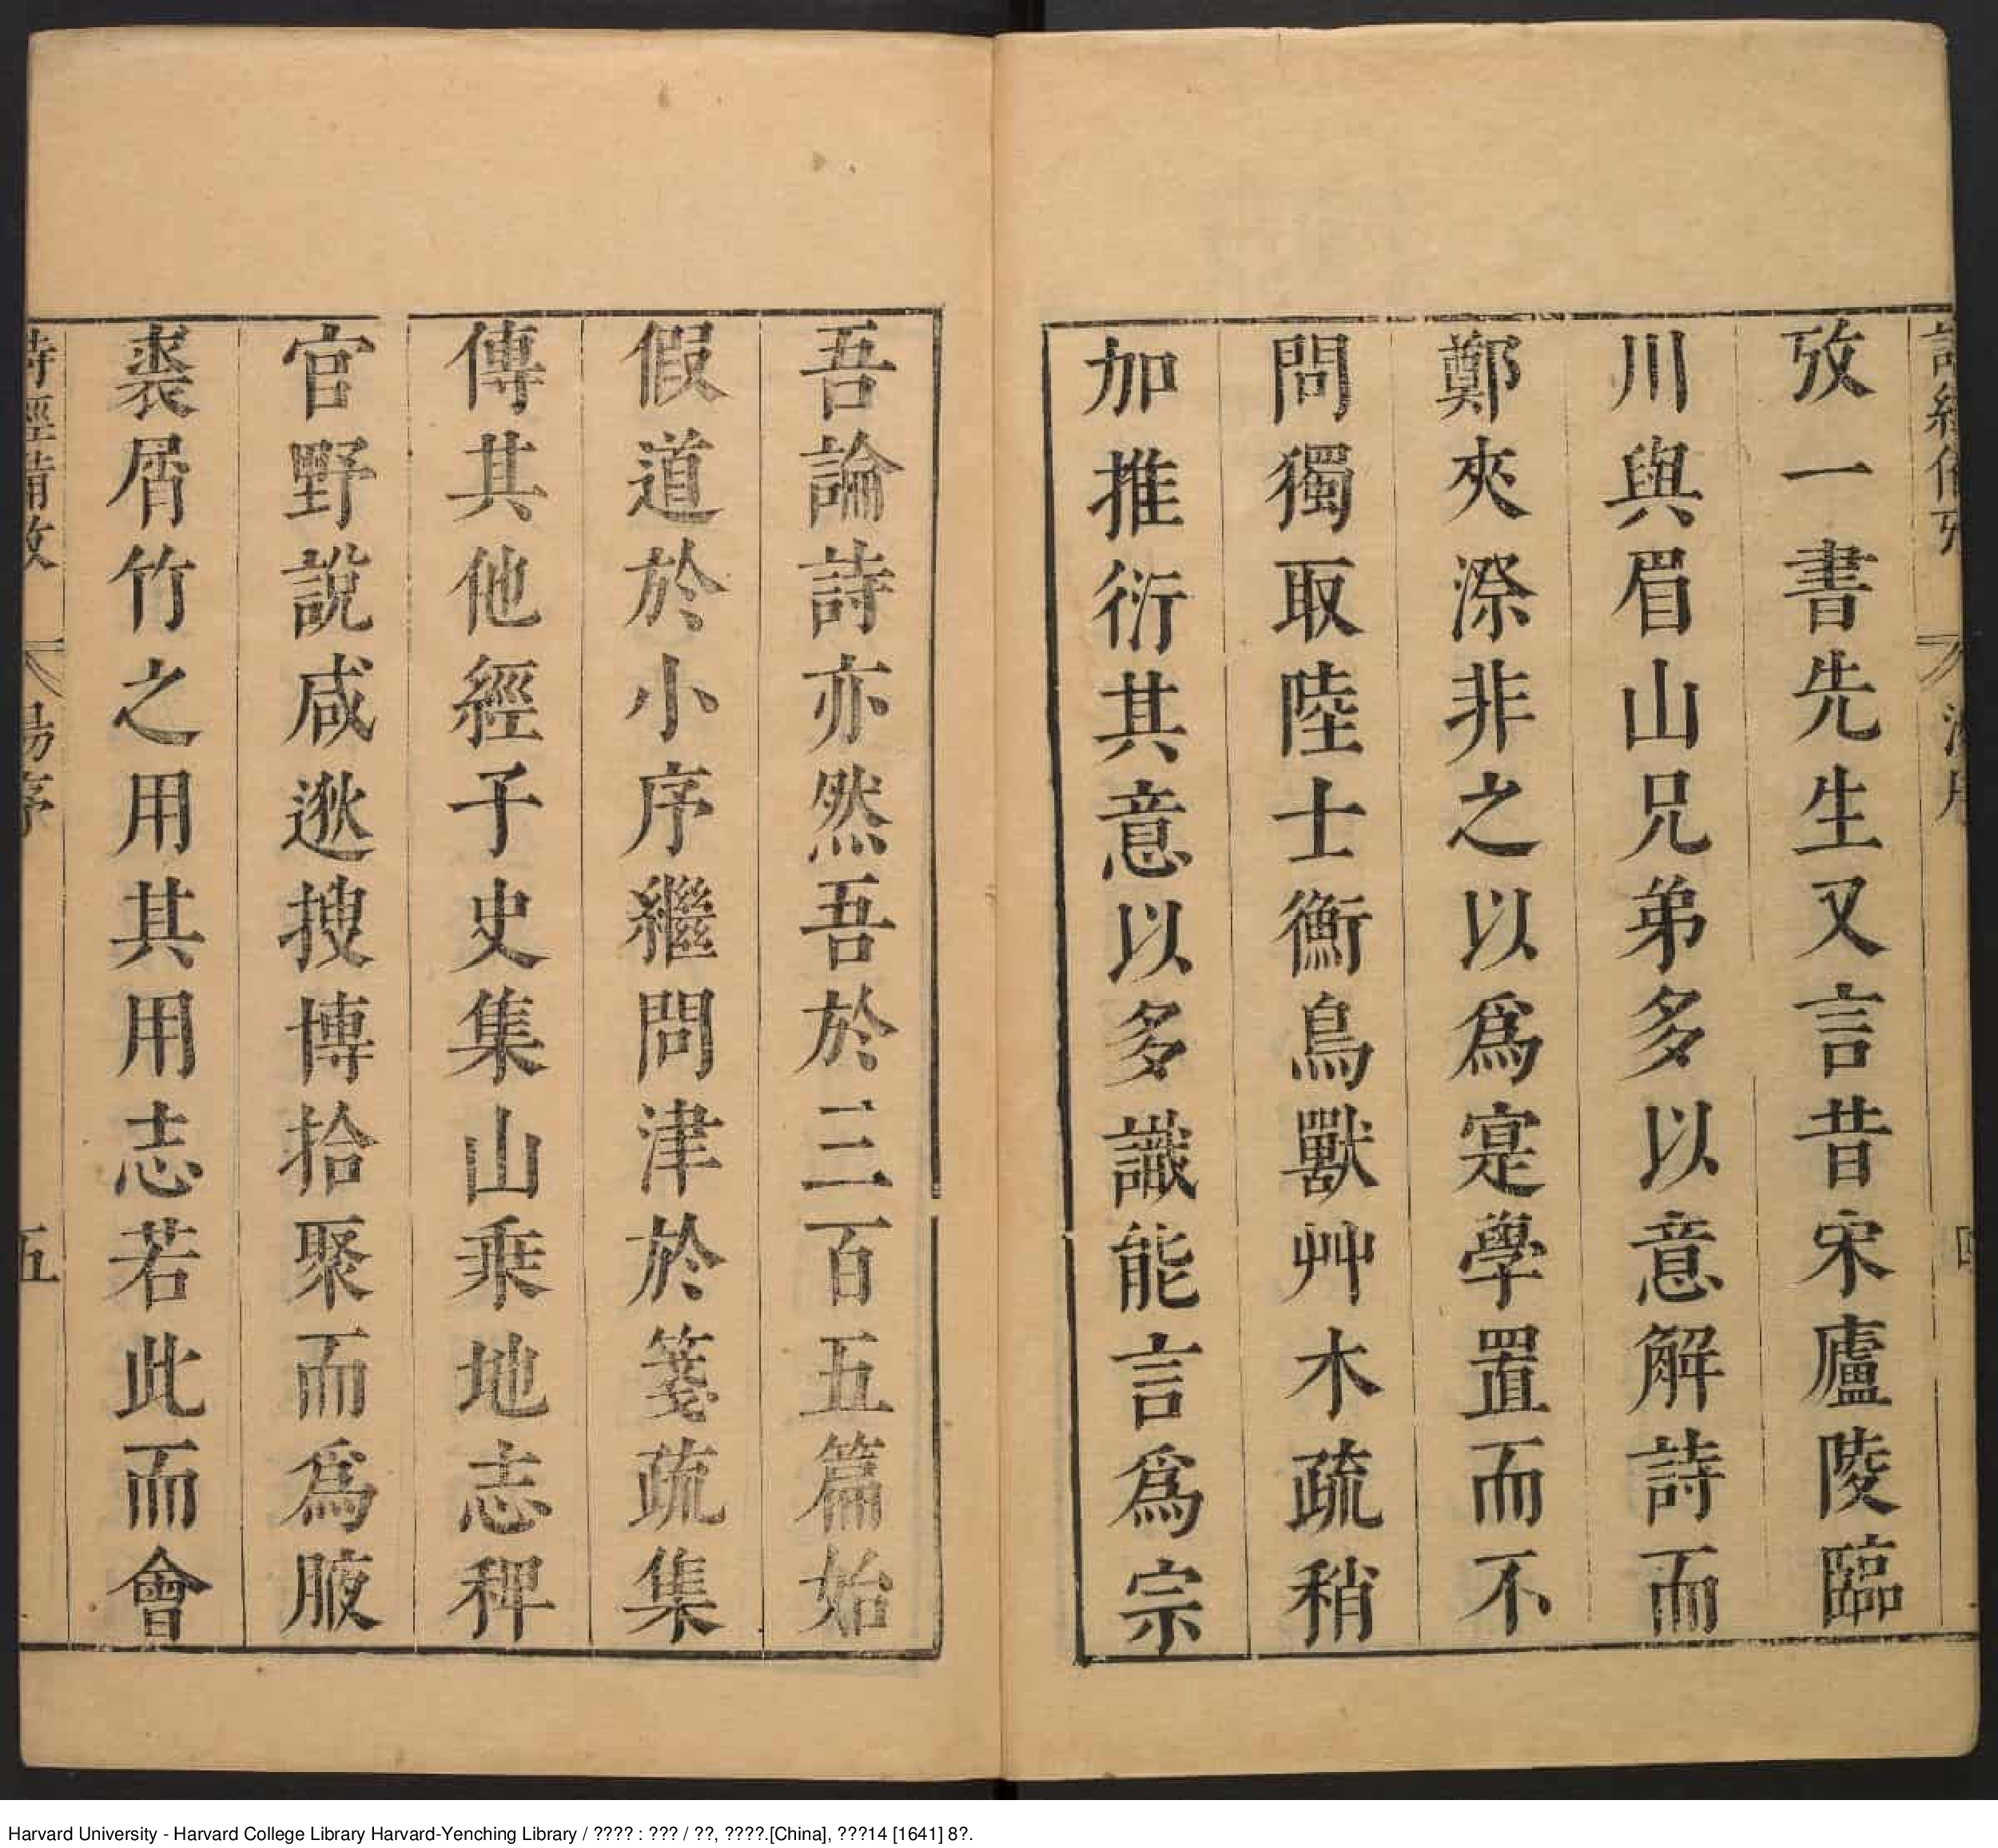 攷一書先生又言昔宋廬陵臨
川與眉山兄弟多以意解詩而
鄭夾漈非之以爲寔學置而不
問獨取陸士衡鳥獸艸木疏稍
加推衍其意以多識能言爲宗
吾論詩亦然吾於三百五篇始
假道於小序繼問津於箋疏集
傳其他經子史集山乘地志稗
官野說咸逖搜博拾聚而爲腋
裘屑竹之用其用志若此而會
詩經備攷
楊序
五
Harvard University - Harvard College Library Harvard-Yenching Library / ???? : ??? / ??, ????.[China], ???14 [1641] 8?.